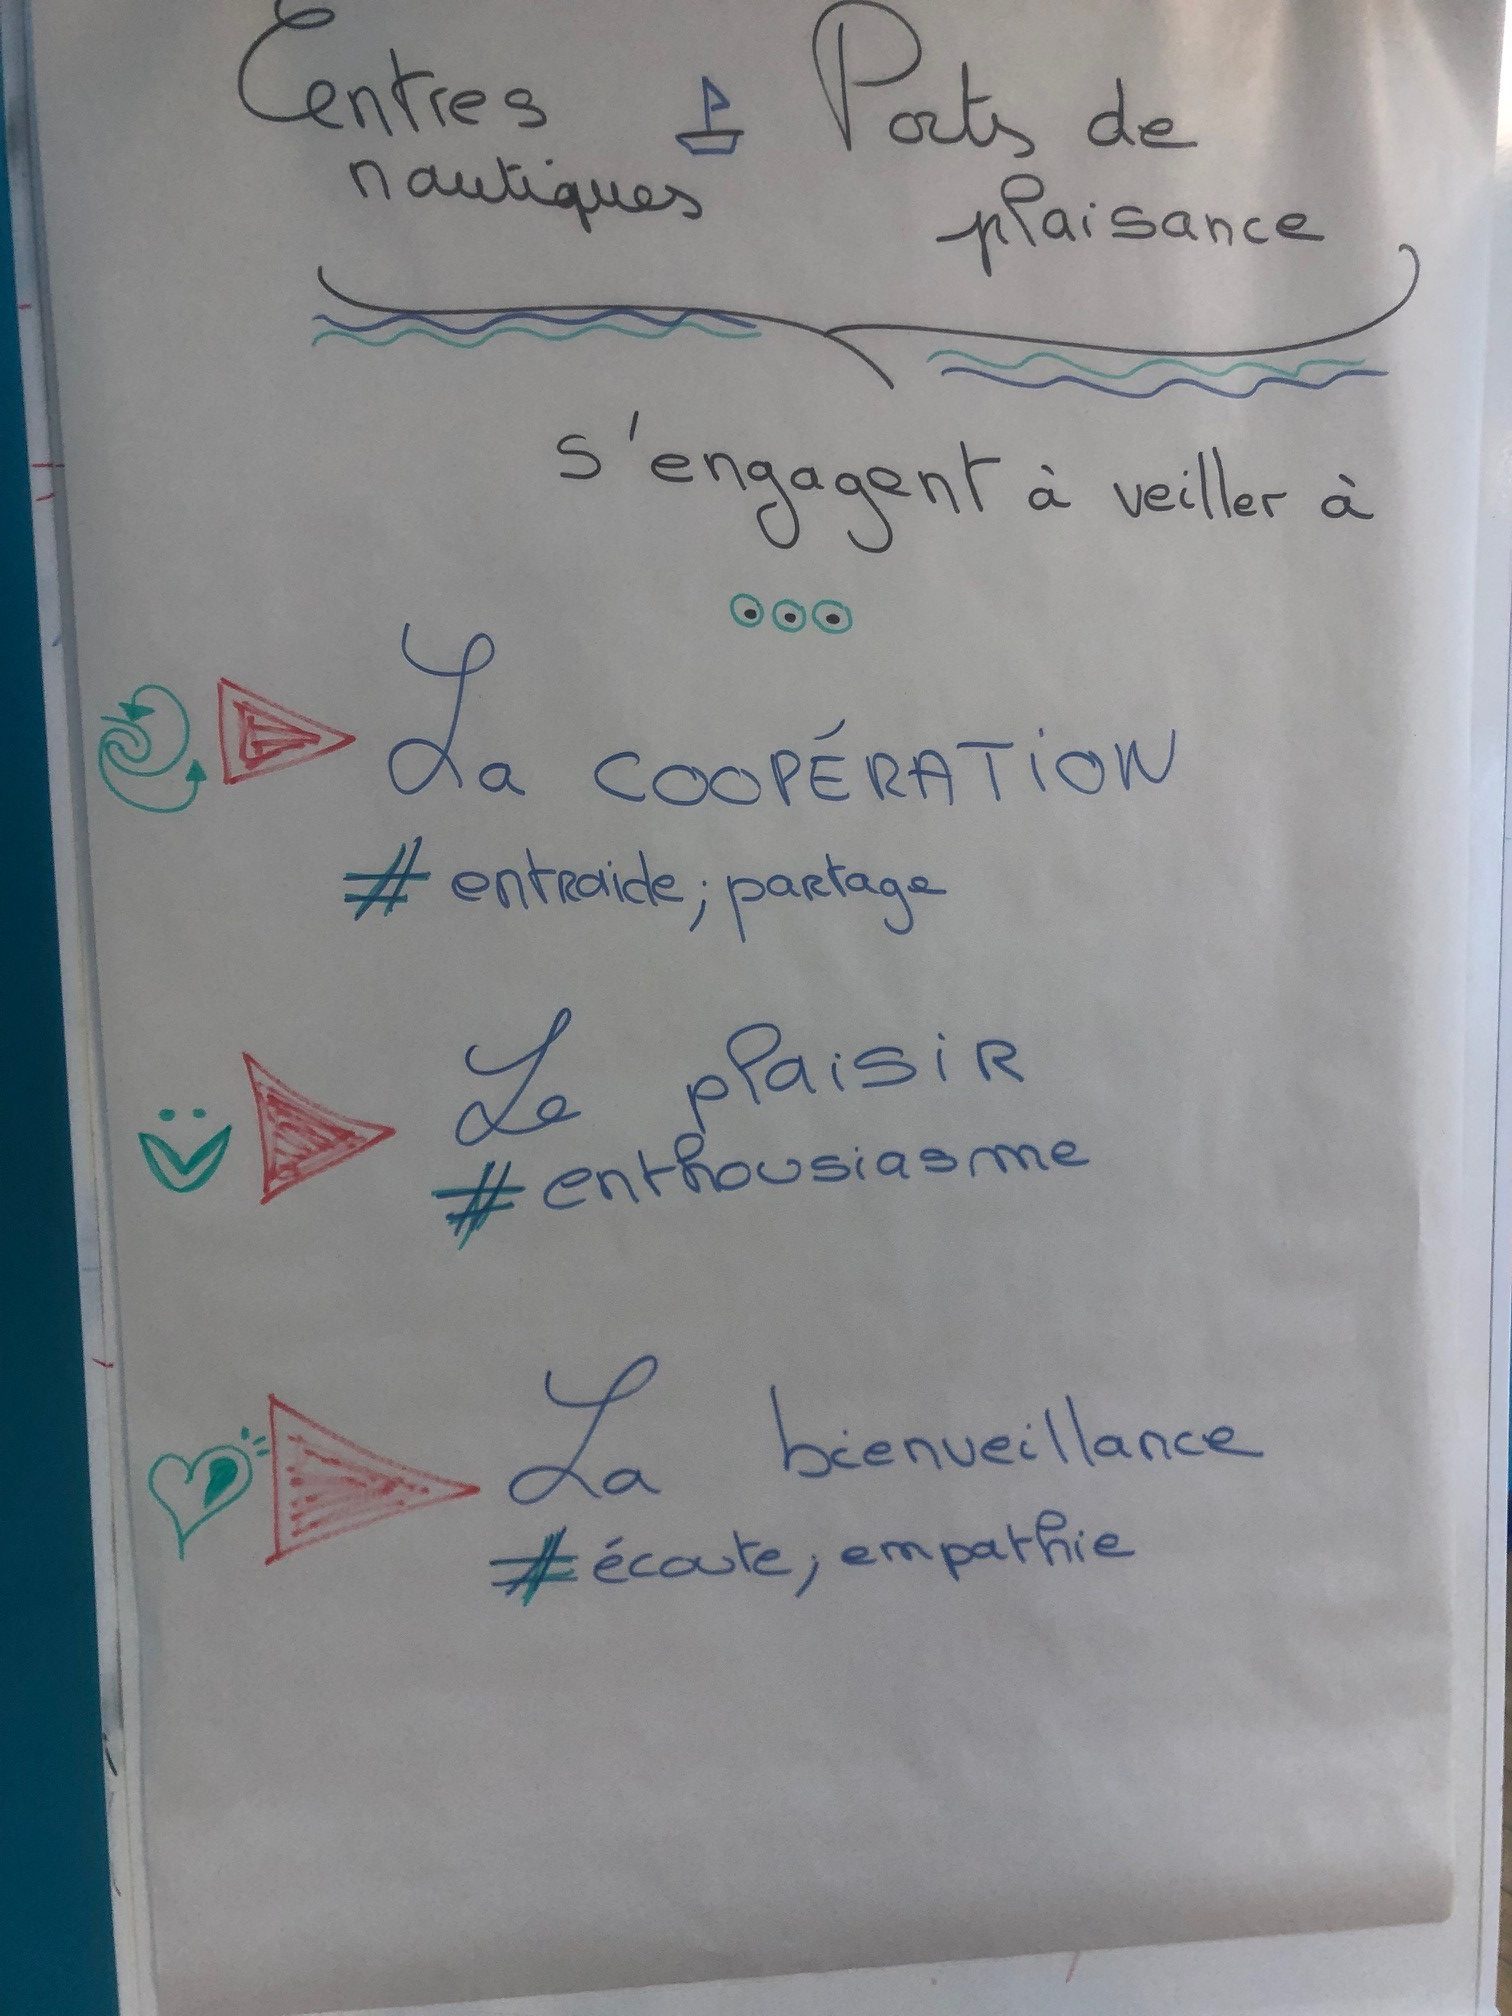 Centres nautiques
Ports de plaisance
s'engagent à veiller à
La COOPÉRATiON
# entraide ; partage
Le plaisiR
# enthousiasme
La bienveillance
# écoute ; empathie